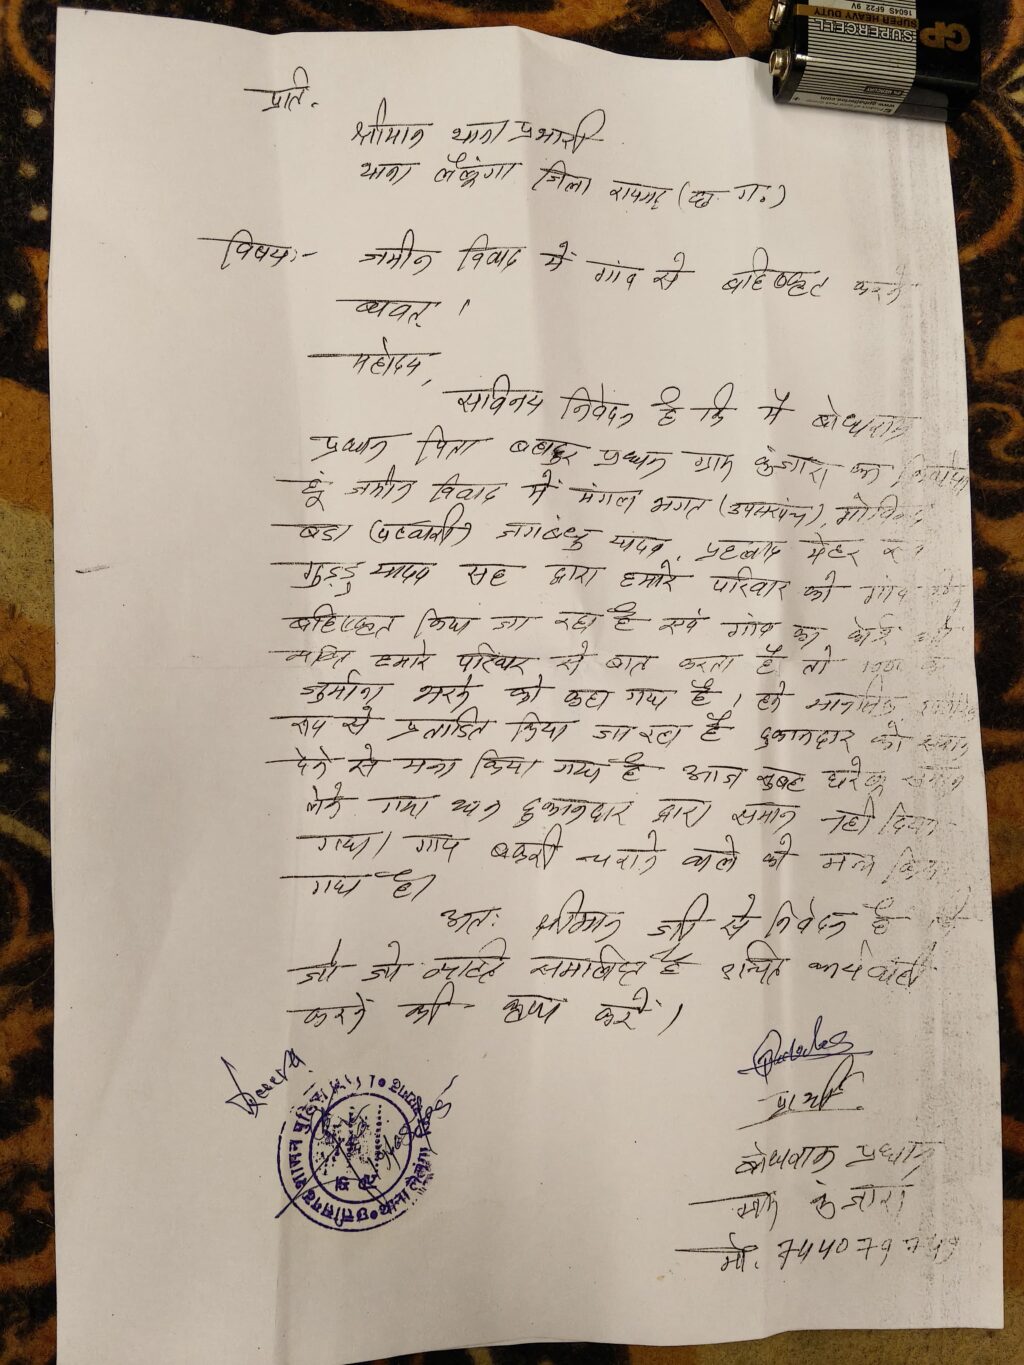 प्रति,
श्रीमान थाना प्रभारी
थाना लैलूंगा जिला रायगढ़ (छ. ग.)
विषय:- जमीन विवाद में गांव से बहिष्कृत करने
बाबत् ।
महोदय,
सविनय निवेदन है कि मैं बोधराम
प्रधान पिता बहादुर प्रधान ग्राम कुंजारा का निवासी
हूं जमीन विवाद में मंगल भगत (उपसरपंच), गोविन्द
बडा (पटवारी) जगबंधु यादव, प्रहलाद मेहर
गुड्डु यादव सह द्वारा हमारे परिवार को गांव
बहिष्कृत किया जा रहा है एवं गांव का कोई भी
व्यक्ति हमारे परिवार से बात करता है तो
जुर्माना भरने को कहा गया है । हमे मानसिक
रूप से प्रताडित किया जा रहा है दुकानदार को समान
देने से मना किया गया है आज सुबह घरेलू समान
लेने गया था दुकानदार द्वारा समान नही दिया
गया। गाय बकरी चराने वाले को मना किया
गया है।
अतः श्रीमान जी से निवेदन है कि
जो जो व्यक्ति है उचित कार्यवाही
करने की कृपा करें।
प्रार्थी
बोधराम प्रधान
ग्राम कुंजारा
मो. 744079749
छत्तीसगढ़ शासन पुलिस थाना लैलूंगा
GP
SUPERCELL
SUPER HEAVY DUTY
1604S 6F22 9V